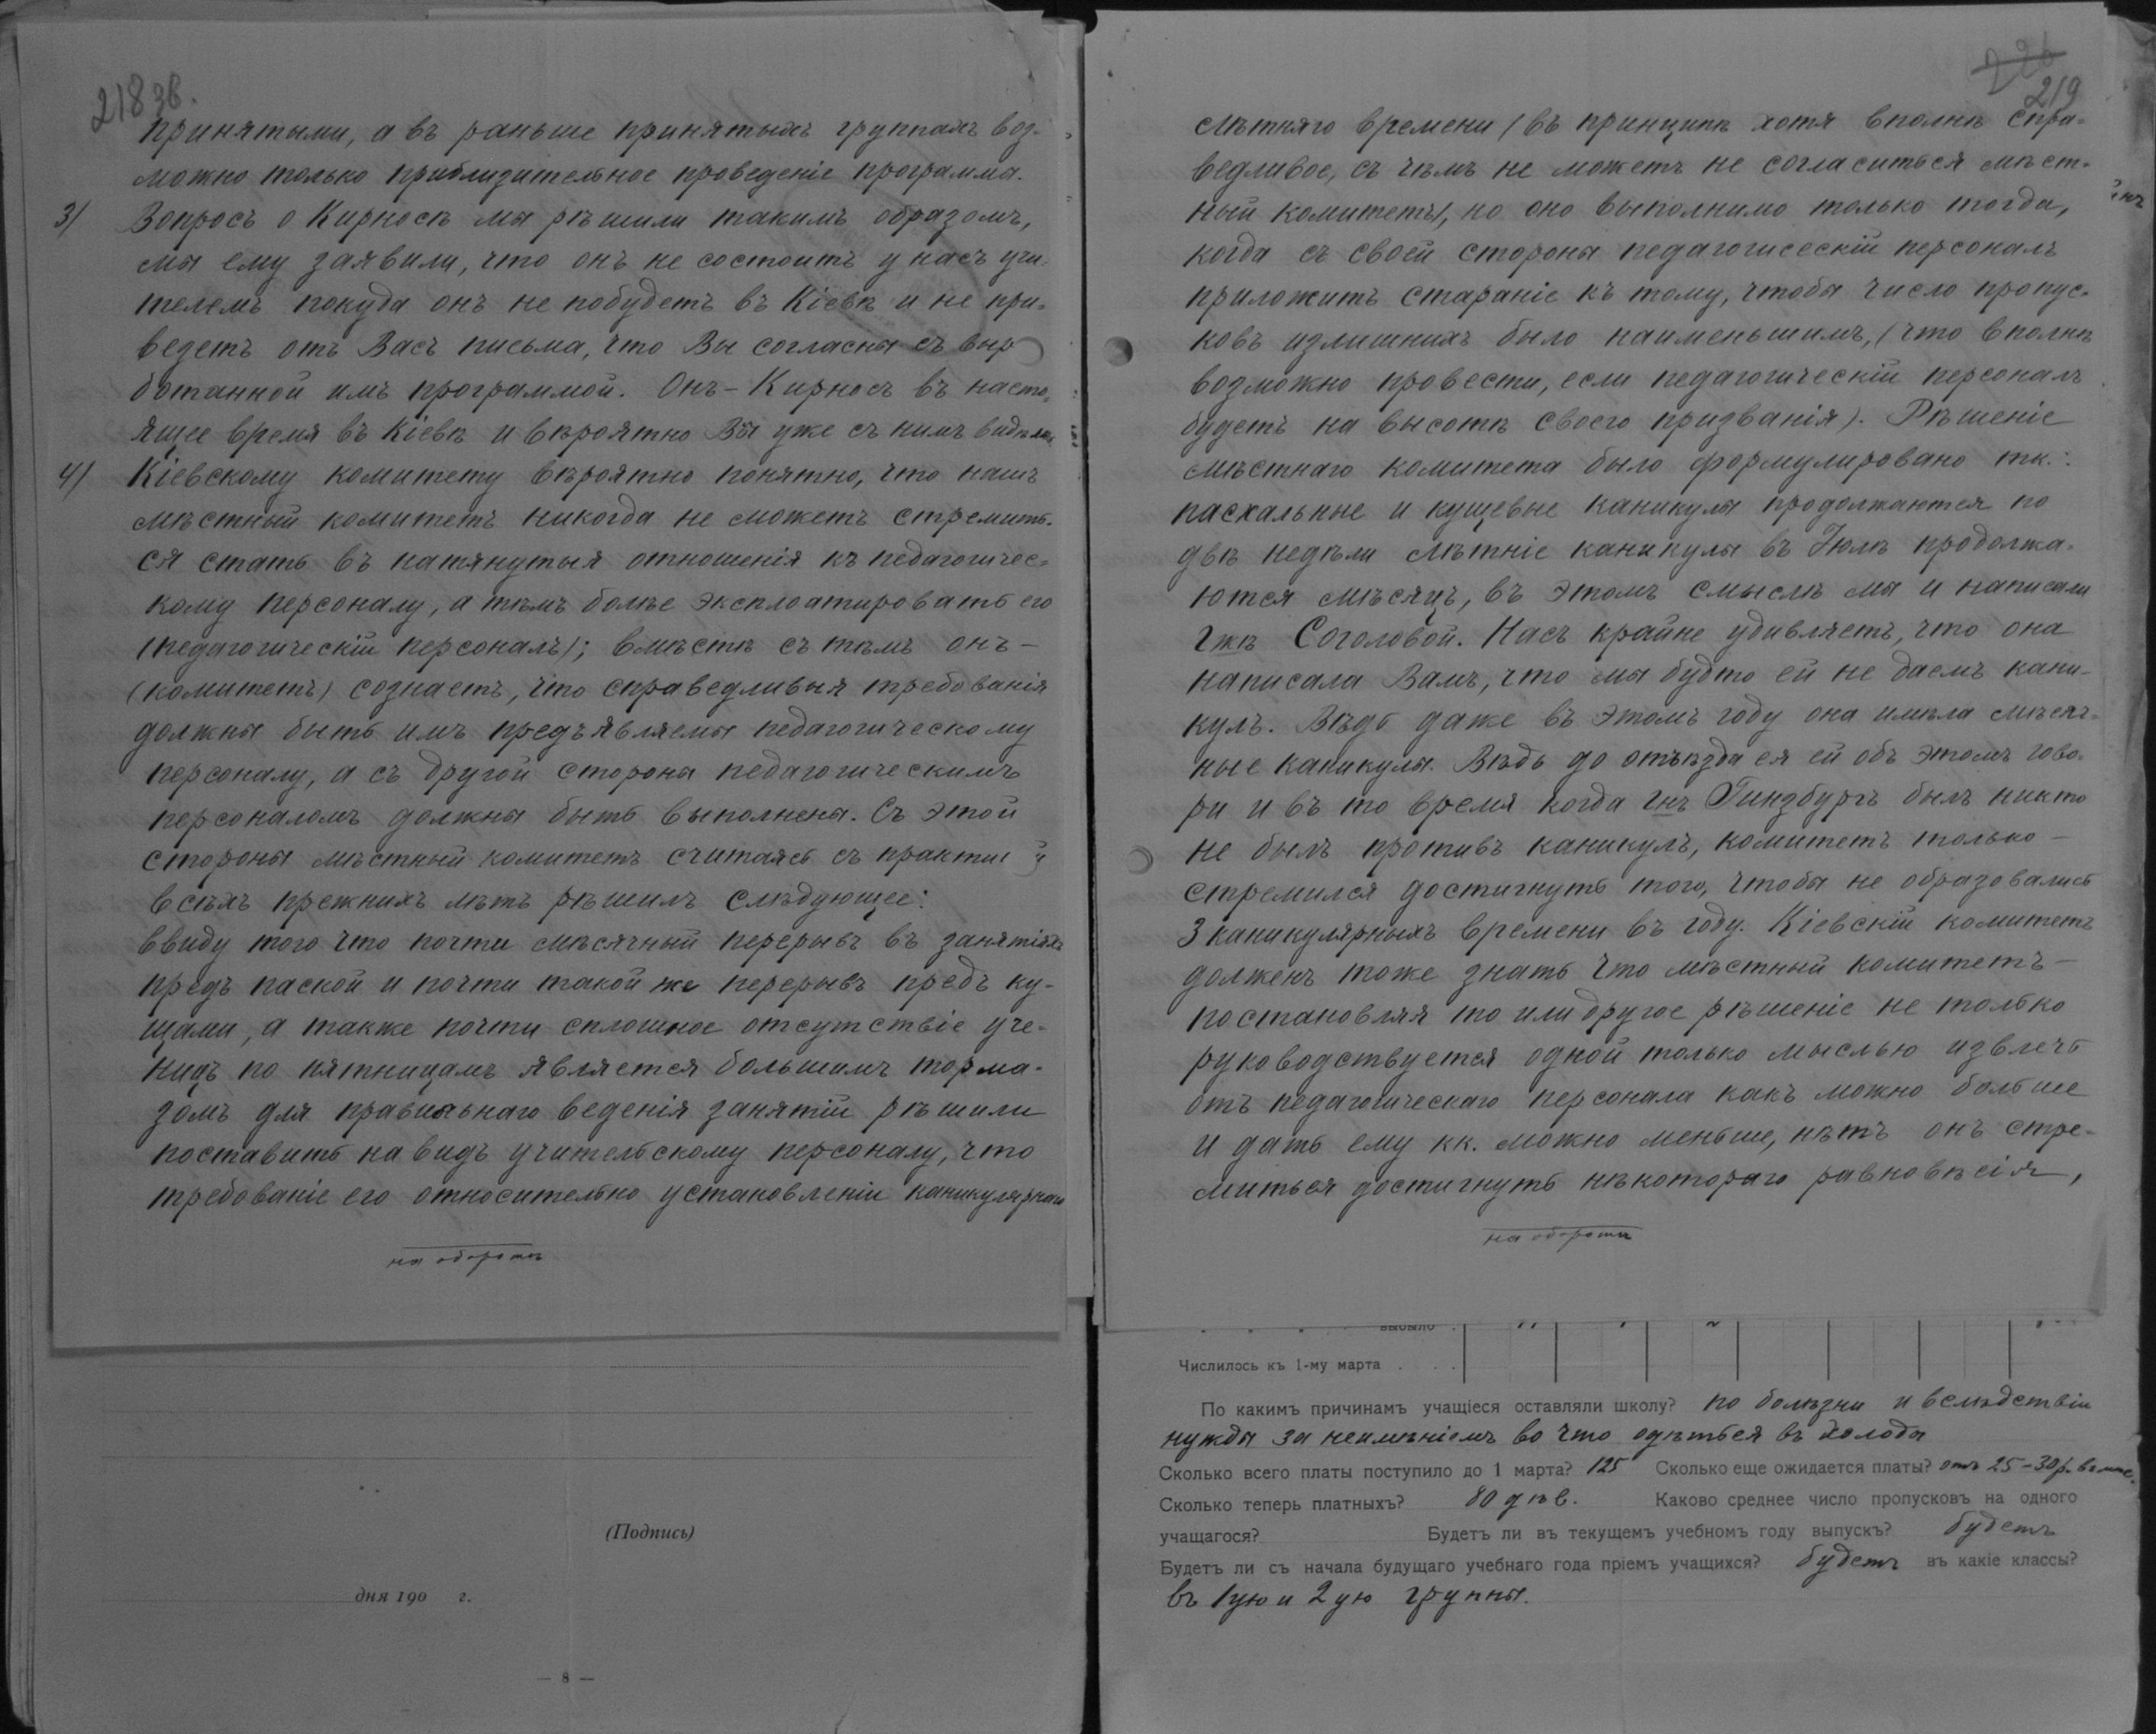 218 зв.
принятыми, а въ раньше принятыхъ группахъ воз-
можно только приблизительное проведеніе программы.
3/ Вопросъ о Кирносѣ мы рѣшили такимъ образомъ,
мы ему заявили, что онъ не состоитъ у насъ учи-
телемъ покуда онъ не побудетъ въ Кіевѣ и не при-
везетъ отъ Васъ письма, что Вы согласны съ выр
ботанной имъ программой. Онъ - Кирносъ въ насто-
ящее время въ Кіевѣ и вѣроятно Вы уже съ нимъ видѣлись
4/ Кіевскому комитету вѣроятно понятно, что нашъ
мѣстный комитетъ никогда не можетъ стремить-
ся стать въ натянутыя отношенія къ педагогичес-
кому персоналу, а тѣмъ болѣе эксплоатировать его
(педагогическій персоналъ); вмѣстѣ съ тѣмъ онъ -
(комитетъ) сознаетъ, что справедливыя требованія
должны быть имъ предъявляемы педагогическому
персоналу, а съ другой стороны педагогическимъ
персоналомъ должны быть выполнены. Съ этой
стороны мѣстный комитетъ считаясь съ практи й
всѣхъ прежнихъ лѣтъ рѣшилъ слѣдующее:
ввиду того что почти мѣсячный перерывъ въ занятіяхъ
предъ паской и почти такой же перерывъ предъ ку-
щами, а также почти сплошное отсутствіе уче-
ницъ по пятницамъ является большимъ торма-
зомъ для правильнаго веденія занятій рѣшили
поставить на видъ учительскому персоналу, что
требованіе его относительно установленіи каникулярнаго
на оборотѣ
(Подпись)
дня 190 г.
— 8 —
226
219
лѣтняго времени (въ принципѣ хотя вполнѣ спра-
ведливое, съ чѣмъ не можетъ не согласиться мѣст-
ный комитетъ), но оно выполнимо только тогда,
когда съ своей стороны педагогисескій персоналъ
приложитъ стараніе къ тому, чтобы число пропус-
ковъ излишнихъ было наименьшимъ, (что вполнѣ
возможно провести, если педагогическій персоналъ
будетъ на высотѣ своего призванія). Рѣшеніе
мѣстнаго комитета было формулировано тк.:
пасхальные и кущевые каникулы продолжаются по
двѣ недѣли лѣтніе каникулы въ Іюлѣ продолжа-
ются мѣсяцъ, въ этомъ смыслѣ мы и написали
Гжѣ Соголовой. Насъ крайне удивляетъ, что она
написала Вамъ, что мы будто ей не даемъ кани-
кулъ. Вѣдь даже въ этомъ году она имѣла мѣсяч-
ные каникулы. Вѣдь до отъѣзда ея ей объ этомъ гово-
ри и въ то время когда Гнъ Гинзбургъ былъ никто
не былъ противъ каникулъ, комитетъ только -
стремился достигнуть того, чтобы не образовались
3 каникулярныхъ времени въ году. Кіевскій комитетъ
долженъ тоже знать что мѣстный комитетъ -
постановляя то или другое рѣшеніе не только
руководствуется одной только мыслью извлечь
отъ педагогическаго персонала какъ можно больше
и дать ему кк. можно меньше, нѣтъ онъ стре-
миться достигнуть нѣкотораго равновѣсія,
на оборотѣ
выбыло .
Числилось къ 1-му марта . . .
По какимъ причинамъ учащіеся оставляли школу? по болѣзни и вслѣдствіи
нужды за неимѣніемъ во что одѣться въ холода
Сколько всего платы поступило до 1 марта? 125 Сколько еще ожидается платы? отъ 25-30 р. въ мѣс.
Сколько теперь платныхъ? 80 дѣв. Каково среднее число пропусковъ на одного
учащагося? Будетъ ли въ текущемъ учебномъ году выпускъ? будетъ
Будетъ ли съ начала будущаго учебнаго года пріемъ учащихся? будетъ въ какіе классы?
въ 1ую и 2ую группы.